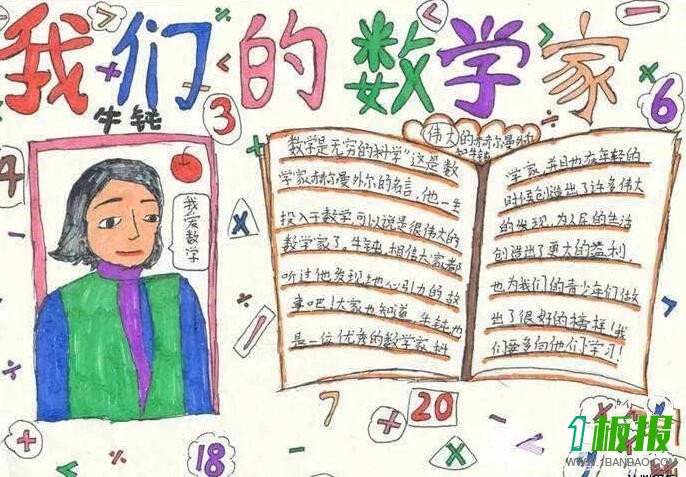 我们的数学家
牛钝
我爱数学
伟大的赫尔曼外尔
和牛钝
数学是无穷的科学”这是数
学家赫尔曼外尔的名言,他一生
投入于数学可以说是很伟大的
数学家了。牛钝,相信大家都
听过他发现地心引力的故
事吧!大家也知道,牛钝也
是一位优秀的数学家、科
学家,并且也在年轻的
时候创造出了许多伟大
的发现,为人民的生活
创造出了更大的益利,
也为我们的青少年们做
出了很好的榜样!我
们要多向他们学习!
3
6
4
7
20
18
1板报
WWW.1BANBAO.COM